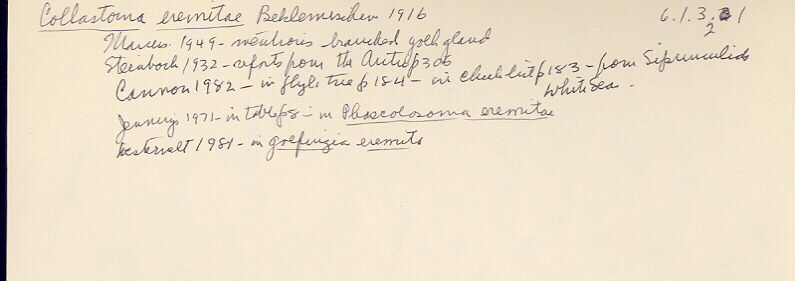 Collastoma eremitae Beklemischev 1916 6.1.3.2 1
Marcus 1949 - mentions branched yolk gland
Steinböck 1932 - reports from the Antrep 306
Cannon 1982 - in phyl. tree p 184 - in checklist p 183 - from Sipunculids
White Sea.
Jennings 1971 - in table p 8 - in Phascolosoma eremitae
Westervelt 1981 - in golfingia eremita